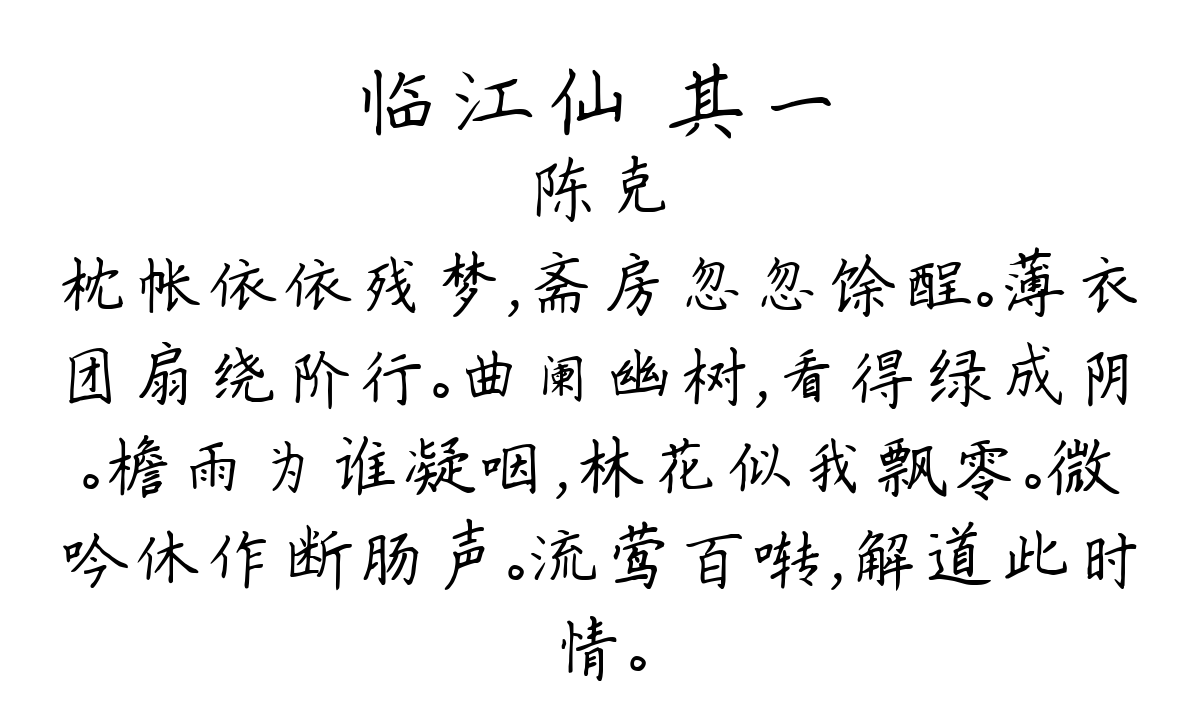 临江仙 其一
陈克
枕帐依依残梦,斋房忽忽馀酲。薄衣
团扇绕阶行。曲阑幽树,看得绿成阴
。檐雨为谁凝咽,林花似我飘零。微
吟休作断肠声。流莺百啭,解道此时
情。